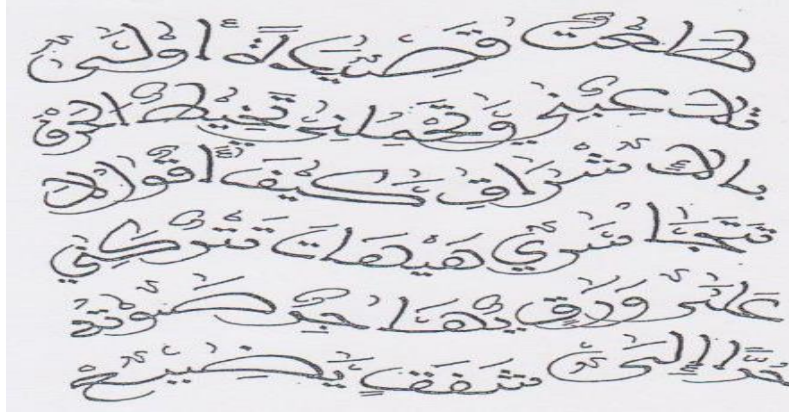 طلعت قصيدة أولى
تلاعبني وتحملني تخيط الحرف
بالاشراق كيف أقولها
تتجاسري هيهات تتركني
على ورق يهاجر صوته
شفق يضيع